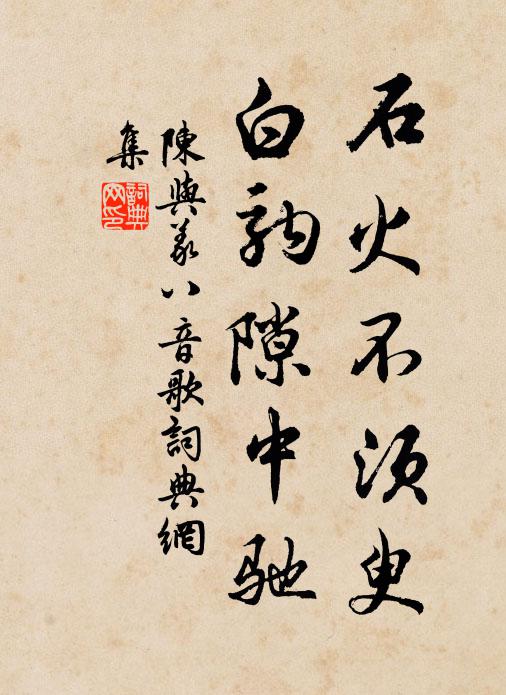 石火不須臾
白駒隙中馳
陳與義八音歌詞典網
集
詞典
网印